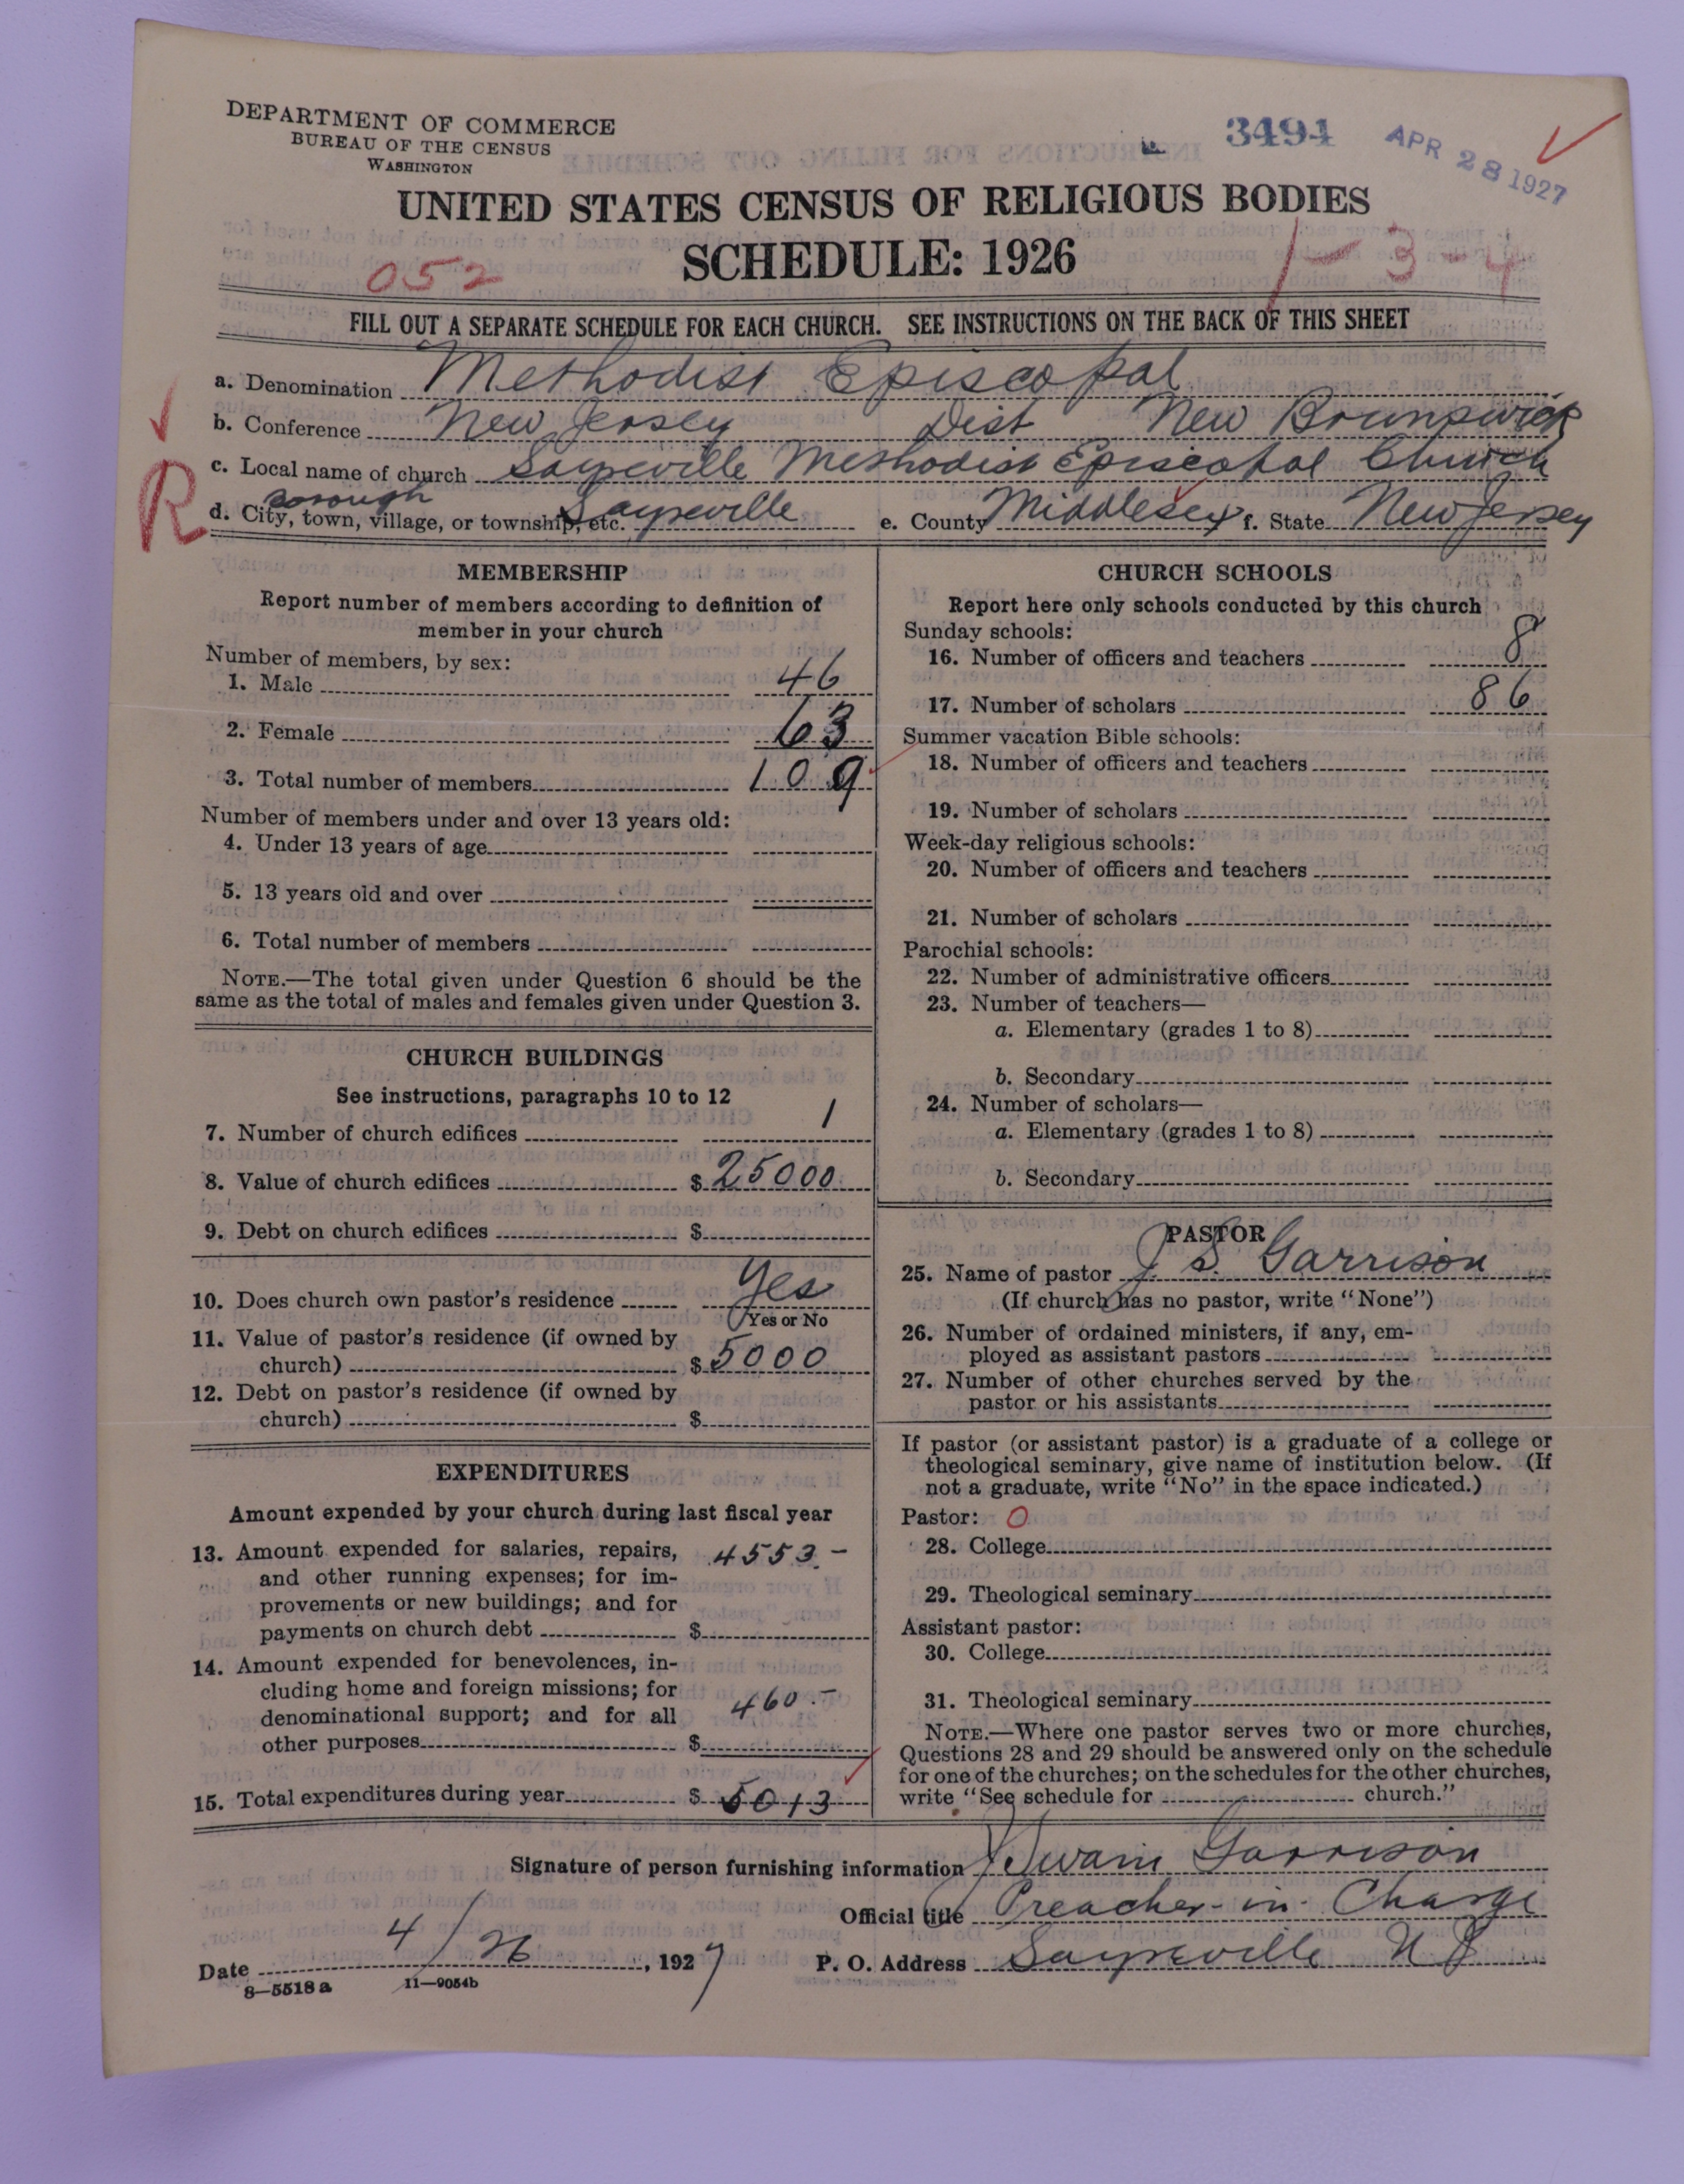 DEPARTMENT OF COMMERCE
BUREAU OF THE CENSUS
WASHINGTON
3494
APR 28 1927
UNITED STATES CENSUS OF RELIGIOUS BODIES
SCHEDULE: 1926
052
1-3-4
FILL OUT A SEPARATE SCHEDULE FOR EACH CHURCH. SEE INSTRUCTIONS ON THE BACK OF THIS SHEET
a. Denomination Methodist Episcopal
b. Conference New Jersey Dist New Brunswick
c. Local name of church Sayreville Methodist Episcopal Church
R
borough
d. City, town, village, or township, etc. Sayreville e. County Middlesex f. State New Jersey
MEMBERSHIP
Report number of members according to definition of
member in your church
Number of members, by sex:
1. Male 46
2. Female 63
3. Total number of members 109
Number of members under and over 13 years old:
4. Under 13 years of age
5. 13 years old and over
6. Total number of members
NOTE.—The total given under Question 6 should be the
same as the total of males and females given under Question 3.
CHURCH BUILDINGS
See instructions, paragraphs 10 to 12
7. Number of church edifices 1
8. Value of church edifices $ 25000
9. Debt on church edifices $
10. Does church own pastor's residence Yes
Yes or No
11. Value of pastor's residence (if owned by
church) $ 5000
12. Debt on pastor's residence (if owned by
church) $
EXPENDITURES
Amount expended by your church during last fiscal year
13. Amount expended for salaries, repairs, 4553.-
and other running expenses; for im-
provements or new buildings; and for
payments on church debt $
14. Amount expended for benevolences, in-
cluding home and foreign missions; for
denominational support; and for all 460.-
other purposes $
15. Total expenditures during year $ 5013
CHURCH SCHOOLS
Report here only schools conducted by this church
Sunday schools:
16. Number of officers and teachers 8
17. Number of scholars 86
Summer vacation Bible schools:
18. Number of officers and teachers
19. Number of scholars
Week-day religious schools:
20. Number of officers and teachers
21. Number of scholars
Parochial schools:
22. Number of administrative officers
23. Number of teachers—
a. Elementary (grades 1 to 8)
b. Secondary
24. Number of scholars—
a. Elementary (grades 1 to 8)
b. Secondary
PASTOR
25. Name of pastor J. S. Garrison
(If church has no pastor, write "None")
26. Number of ordained ministers, if any, em-
ployed as assistant pastors
27. Number of other churches served by the
pastor or his assistants
If pastor (or assistant pastor) is a graduate of a college or
theological seminary, give name of institution below. (If
not a graduate, write "No" in the space indicated.)
Pastor: O
28. College
29. Theological seminary
Assistant pastor:
30. College
31. Theological seminary
NOTE.—Where one pastor serves two or more churches,
Questions 28 and 29 should be answered only on the schedule
for one of the churches; on the schedules for the other churches,
write "See schedule for church."
Signature of person furnishing information J Swain Garrison
Official title Preacher-in-Charge
Date 4/26, 1927 P. O. Address Sayreville N J
8—5518 a 11—9054b